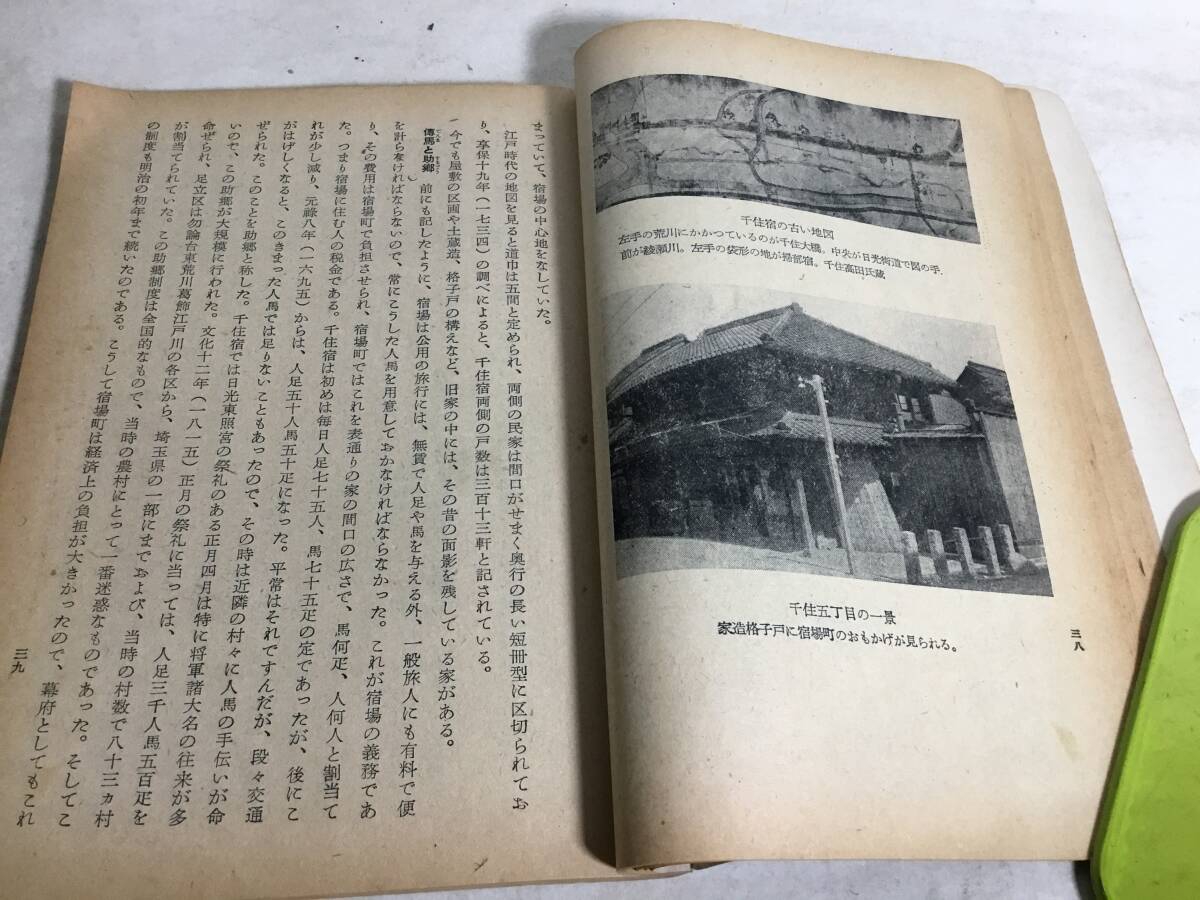 千住宿の古い地図
左手の荒川にかかつているのが千住大橋。中央が日光街道で図の手
前が綾瀬川。左手の袋形の地が掃部宿。千住高田氏蔵
千住五丁目の一景
家造格子戸に宿場町のおもかげが見られる。
三八
まっていて、宿場の中心地をなしていた。
江戸時代の地図を見ると道巾は五間と定められ、両側の民家は間口がせまく奥行の長い短冊型に区切られてお
り、享保十九年(一七三四)の調べによると、千住宿両側の戸数は三百十三軒と記されている。
今でも屋敷の区画や土蔵造、格子戸の構えなど、旧家の中には、その昔の面影を残している家がある。
傳馬と助郷 前にも記したように、宿場は公用の旅行には、無賃で人足や馬を与える外、一般旅人にも有料で便
を計らなければならないので、常にこうした人馬を用意しておかなければならなかった。これが宿場の義務であ
り、その費用は宿場町で負担させられ、宿場町ではこれを表通りの家の間口の広さで、馬何疋、人何人と割当て
た。つまり宿場に住む人の税金である。千住宿は初めは毎日人足七十五人、馬七十五疋の定であったが、後にこ
れが少し減り、元祿八年(一六九五)からは、人足五十人馬五十疋になった。平常はそれですんだが、段々交通
がはげしくなると、このきまった人馬では足りないこともあったので、その時は近隣の村々に人馬の手伝いが命
ぜられた。このことを助郷と称した。千住宿では日光東照宮の祭礼のある正月四月は特に将軍諸大名の往来が多
いので、この助郷が大規模に行われた。文化十二年(一八一五)正月の祭礼に当っては、人足三千人馬五百疋を
命ぜられ、足立区は勿論台東荒川葛飾江戸川の各区から、埼玉県の一部にまでおよび、当時の村数で八十三ヵ村
が割当てられていた。この助郷制度は全国的なもので、当時の農村にとって一番迷惑なものであった。そしてこ
の制度も明治の初年まで続いたのである。こうして宿場町は経済上の負担が大きかったので、幕府としてもこれ
三九